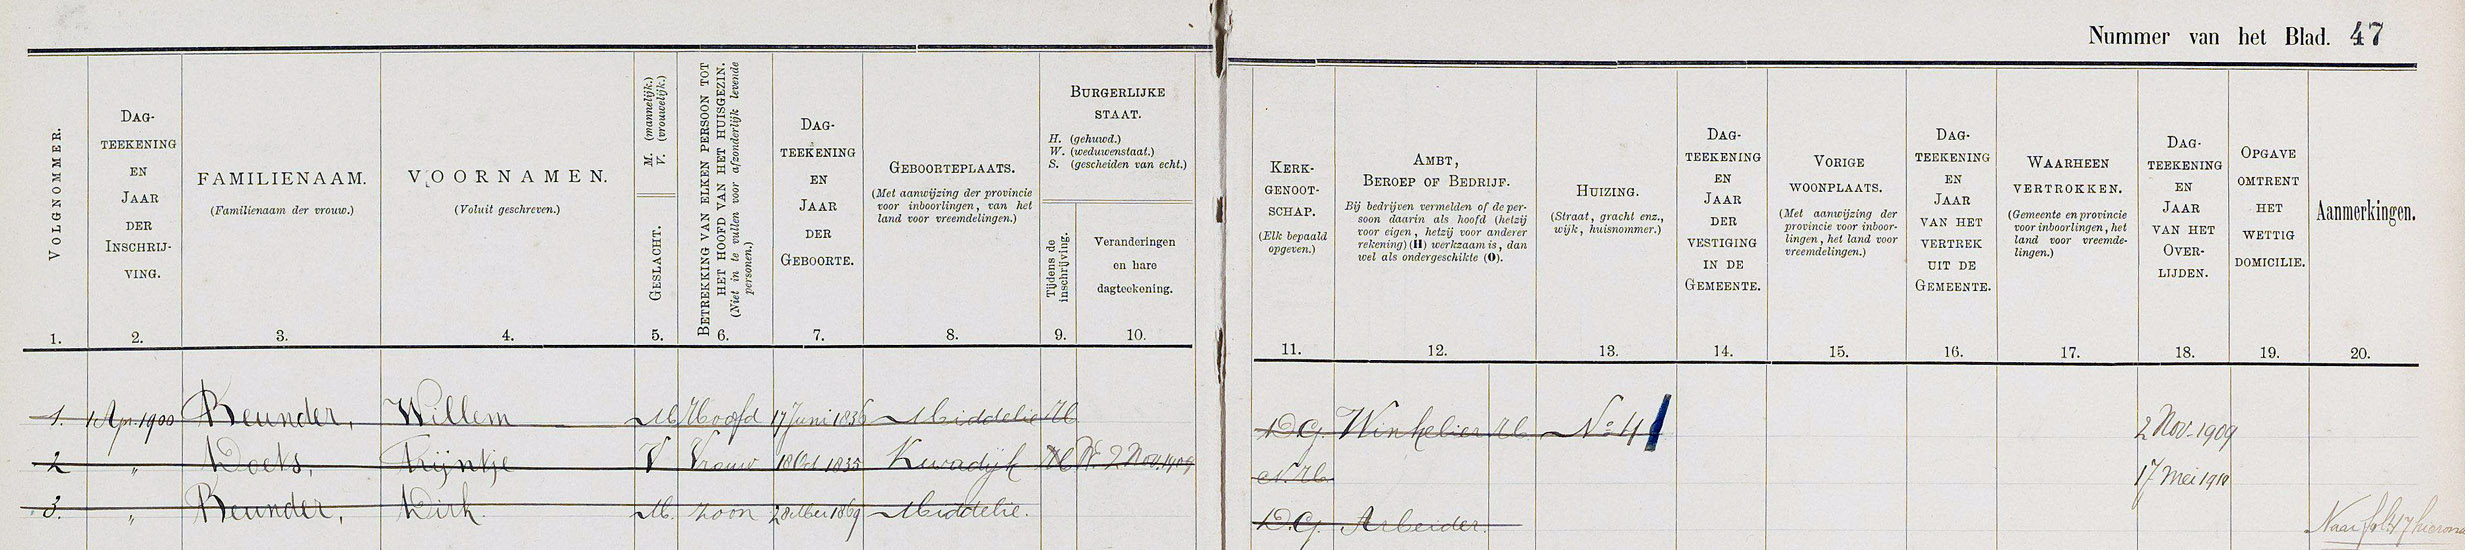 Nummer van het Blad. 47
VOLGNOMMER.
DAG-
TEEKENING
EN
JAAR
DER
INSCHRIJ-
VING.
FAMILIENAAM.
(Familienaam der vrouw.)
VOORNAMEN.
(Voluit geschreven.)
M. (mannelijk.)
V. (vrouwelijk.)
GESLACHT.
BETREKKING VAN ELKEN PERSOON TOT
HET HOOFD VAN HET HUISGEZIN.
(Niet in te vullen voor afzonderlijk levende
personen.)
DAG-
TEEKENING
EN
JAAR
DER
GEBOORTE.
GEBOORTEPLAATS.
(Met aanwijzing der provincie
voor inboorlingen, van het
land voor vreemdelingen.)
BURGERLIJKE
STAAT.
H. (gehuwd.)
W. (weduwenstaat.)
S. (gescheiden van echt.)
Tijdens de
inschrijving.
Veranderingen
en hare
dagteekening.
KERK-
GENOOT-
SCHAP.
(Elk bepaald
opgeven.)
AMBT,
BEROEP OF BEDRIJF.
Bij bedrijven vermelden of de per-
soon daarin als hoofd (hetzij
voor eigen, hetzij voor anderer
rekening) (H) werkzaam is, dan
wel als ondergeschikte (O).
HUIZING.
(Straat, gracht enz.,
wijk, huisnommer.)
DAG-
TEEKENING
EN
JAAR
DER
VESTIGING
IN DE
GEMEENTE.
VORIGE
WOONPLAATS.
(Met aanwijzing der
provincie voor inboor-
lingen, het land voor
vreemdelingen.)
DAG-
TEEKENING
EN
JAAR
VAN HET
VERTREK
UIT DE
GEMEENTE.
WAARHEEN
VERTROKKEN.
(Gemeente en provincie
voor inboorlingen, het
land voor vreemde-
lingen.)
DAG-
TEEKENING
EN
JAAR
VAN HET
OVER-
LIJDEN.
OPGAVE
OMTRENT
HET
WETTIG
DOMICILIE.
Aanmerkingen.
1. 2. 3. 4. 5. 6. 7. 8. 9. 10. 11. 12. 13. 14. 15. 16. 17. 18. 19. 20.
1. 1 Apr. 1900 Beunder, Willem M Hoofd 17 Juni 1836 Middelie H D.G. Winkelier H No 4 2 Nov. 1909
2 " Doets, Trijntje V Vrouw 18 Oct 1835 Kwadijk H W. 2 Nov. 1909 N.H. 17 Mei 1910
3. " Beunder, Dirk. M. Zoon 28 Mei 1869 Middelie. D.G. Arbeider. Naar